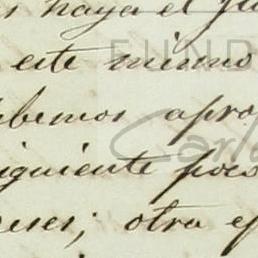 haya el
este mismo
bemos apro
iguiente pos
eses; otra ep
FUND
Carlo